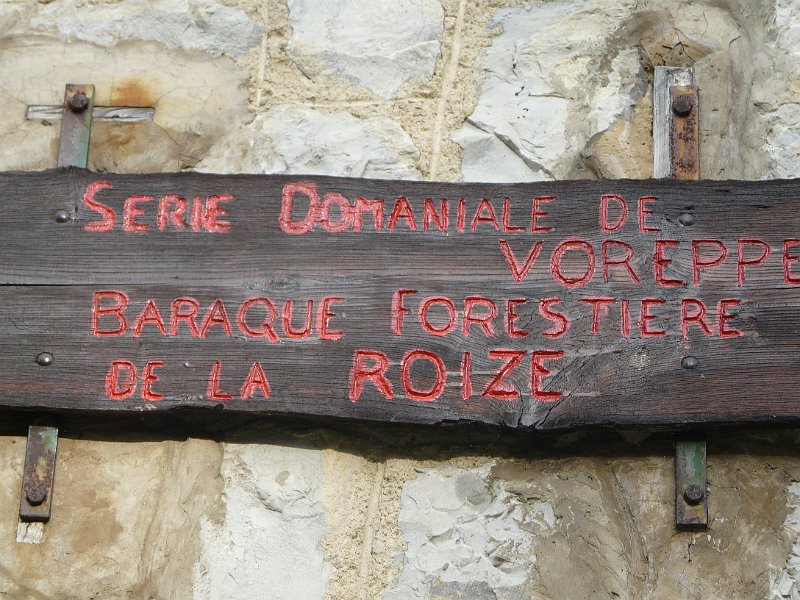 SERIE DOMANIALE DE
VOREPPE
BARAQUE FORESTIÈRE
DE LA ROIZE